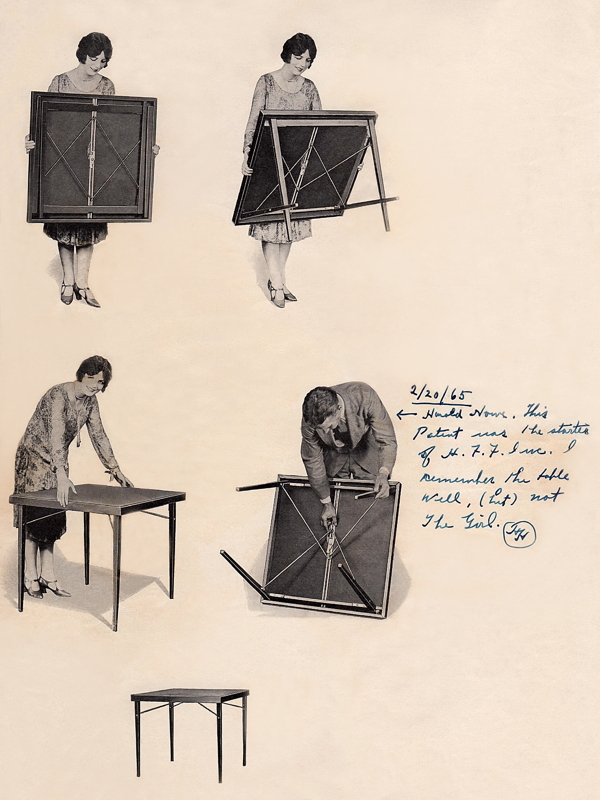 2/20/65
← Harold Howe. This
Patent was the starter
of H.F.F. Inc. I
remember the table
well, (but) not
The Girl. HH